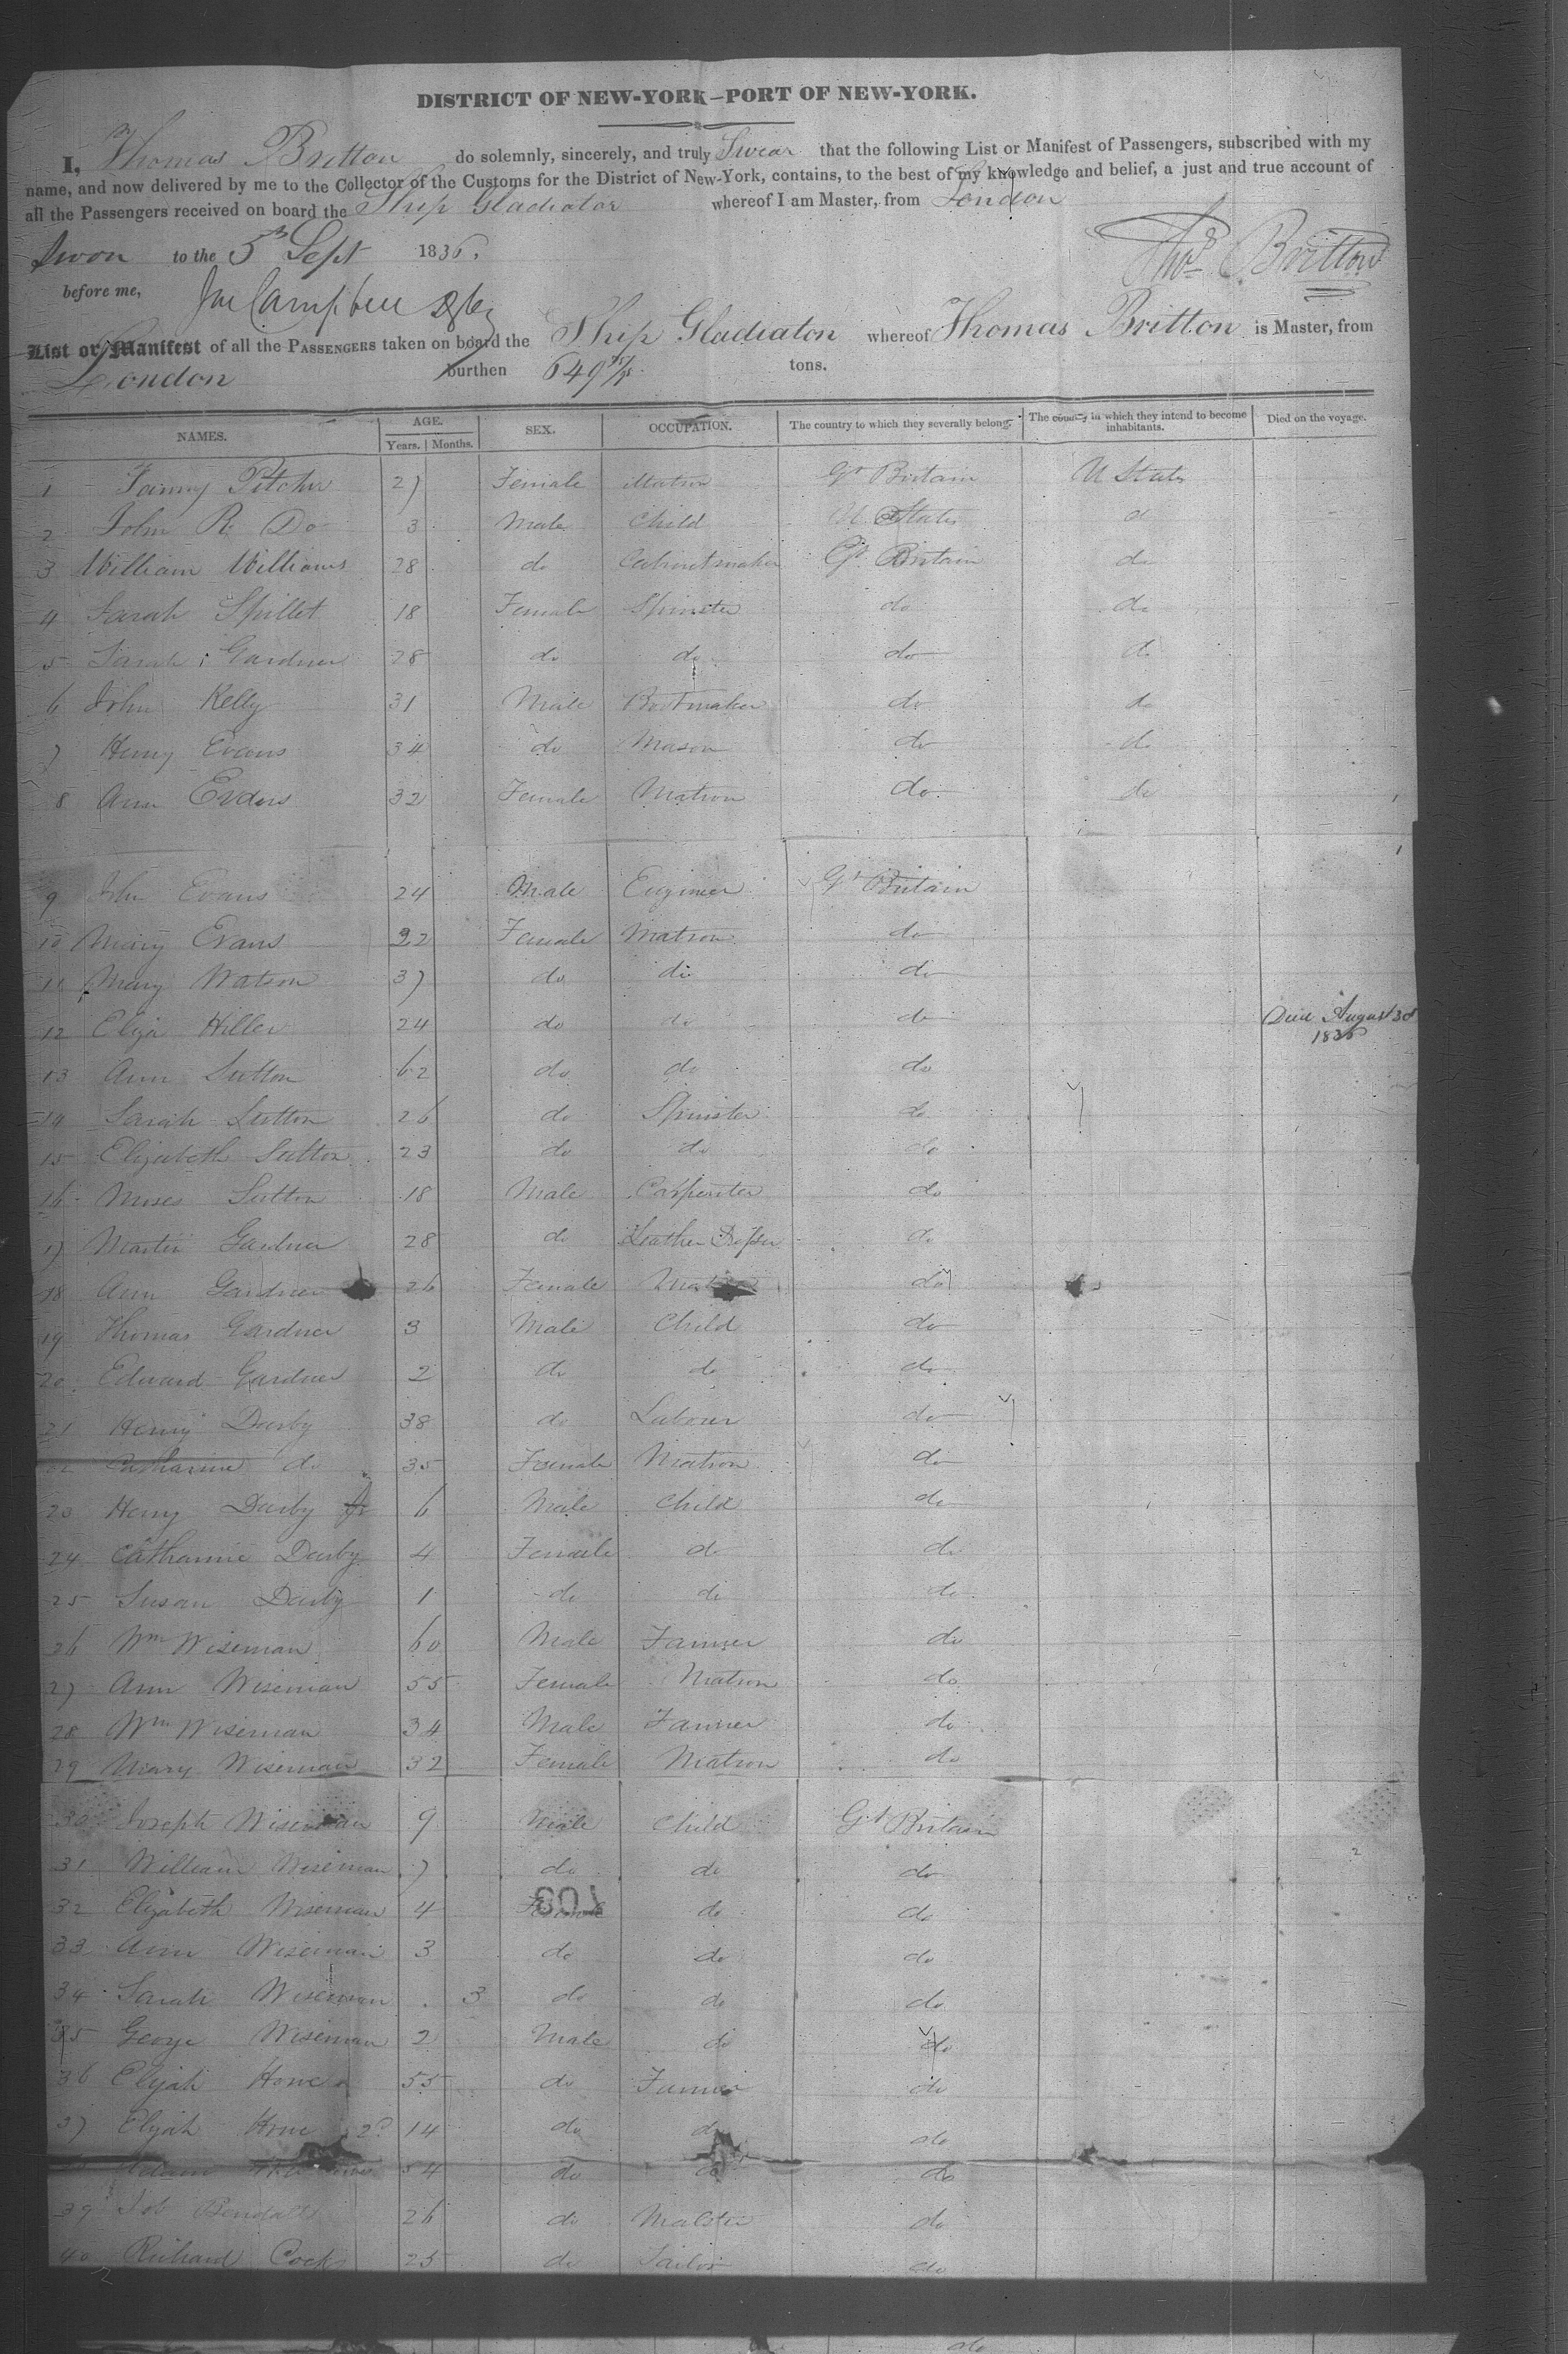 DISTRICT OF NEW-YORK–PORT OF NEW-YORK.
I, Thomas Britton do solemnly, sincerely, and truly Swear that the following List or Manifest of Passengers, subscribed with my
name, and now delivered by me to the Collector of the Customs for the District of New-York, contains, to the best of my knowledge and belief, a just and true account of
all the Passengers received on board the Ship Gladiator whereof I am Master, from London
Swon to the 5 Sept 1836.
Thos Britton
before me,
List or Manifest of all the PASSENGERS taken on board the Ship Gladiator whereof Thomas Britton is Master, from
London burthen 649 tons.
NAMES. AGE. SEX. OCCUPATION. The country to which they severally belong. The country in which they intend to become inhabitants. Died on the voyage.
Years. Months.
1 Fanny Pitcher 27 Female Matron Gt Britain U States
2 John R Do 3 Male Child U States d
3 William Williams 28 do Cabinetmaker Gt Britain do
4 Sarah Spillet 18 Female Spinster do do
5 Sarah Gardner 28 do do do do
6 John Kelly 31 Male Bootmaker do do
7 Henry Evans 34 do Mason do do
8 Ann Evans 32 Female Matron do do
9 John Evans 24 Male Engineer Gt Britain
10 Mary Evans 22 Female Matron do
11 Mary Watson 37 do do do
12 Eliza Hiller 24 do do do Died August 30
1836
13 Ann Sutton 62 do do do
14 Sarah Sutton 26 do Spinster do
15 Elizabeth Sutton 23 do do do
16 Moses Sutton 18 Male Carpenter do
17 Martin Gardner 28 do Leather do
18 Ann Gardner 26 Female Matron do
19 Thomas Gardner 3 Male Child do
20 Edward Gardner 2 do do do
21 Henry Darby 38 do Labourer do
22 Catharine do 35 Female Matron do
23 Henry Darby Jr 6 Male Child do
24 Catharine Darby 4 Female do do
25 Susan Darby 1 do do do
26 Wm Wiseman 60 Male Farmer do
27 Ann Wiseman 55 Female Matron do
28 Wm Wiseman 34 Male Farmer do
29 Mary Wiseman 32 Female Matron do
30 Joseph Wiseman 9 Male Child Gt Britain
31 William Wiseman 7 do do do
32 Elizabeth Wiseman 4 Female do do
33 Ann Wiseman 3 do do do
34 Sarah Wiseman 3 do do do
35 George Wiseman 2 Male do do
36 Elijah Howe 55 do Farmer do
37 Elijah Howe 2d 14 do do do
54 do do do
39 Job 26 do Malster do
40 Richard Cock 25 do Sailor do
do